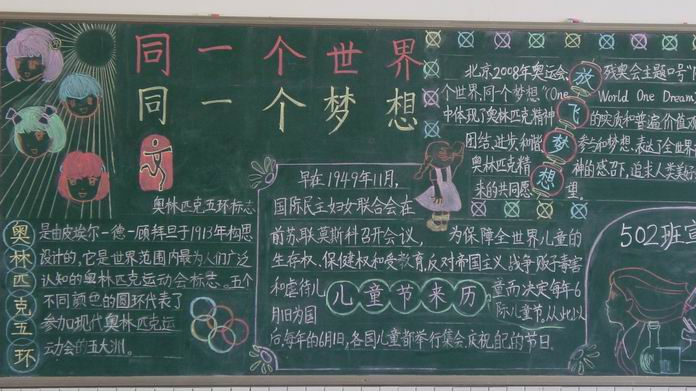 同一个世界
同一个梦想
奥林匹克五环标志
奥林匹克五环
是由皮埃尔一德一顾拜旦于1913年构思
设计的,它是世界范围内最为人们广泛
认知的奥林匹克运动会标志。五个
不同颜色的圆环代表了
参加现代奥林匹克运
动会的五大洲。
北京2008年奥运会 残奥会主题口号"同
个世界,同个梦想"(One World One Dream)
中体现了奥林匹克精神 的实质和普遍价值观
团结、进步和谐 参与和梦想,表达了全世界
奥林匹克精 神的感召下,追求人类美好
来的共同愿 望。
放飞梦想
早在1949年11月,
国际民主妇女联合会在
前苏联莫斯科召开会议, 为保障全世界儿童的
生存权、保健权和受教育,反对帝国主义战争贩子毒害
和虐待儿 童而决定每年6
月1日为国 际儿童节,从此以
后,每年的6月1日,各国儿童都举行集会,庆祝自己的节日.
儿童节来历
502班宣